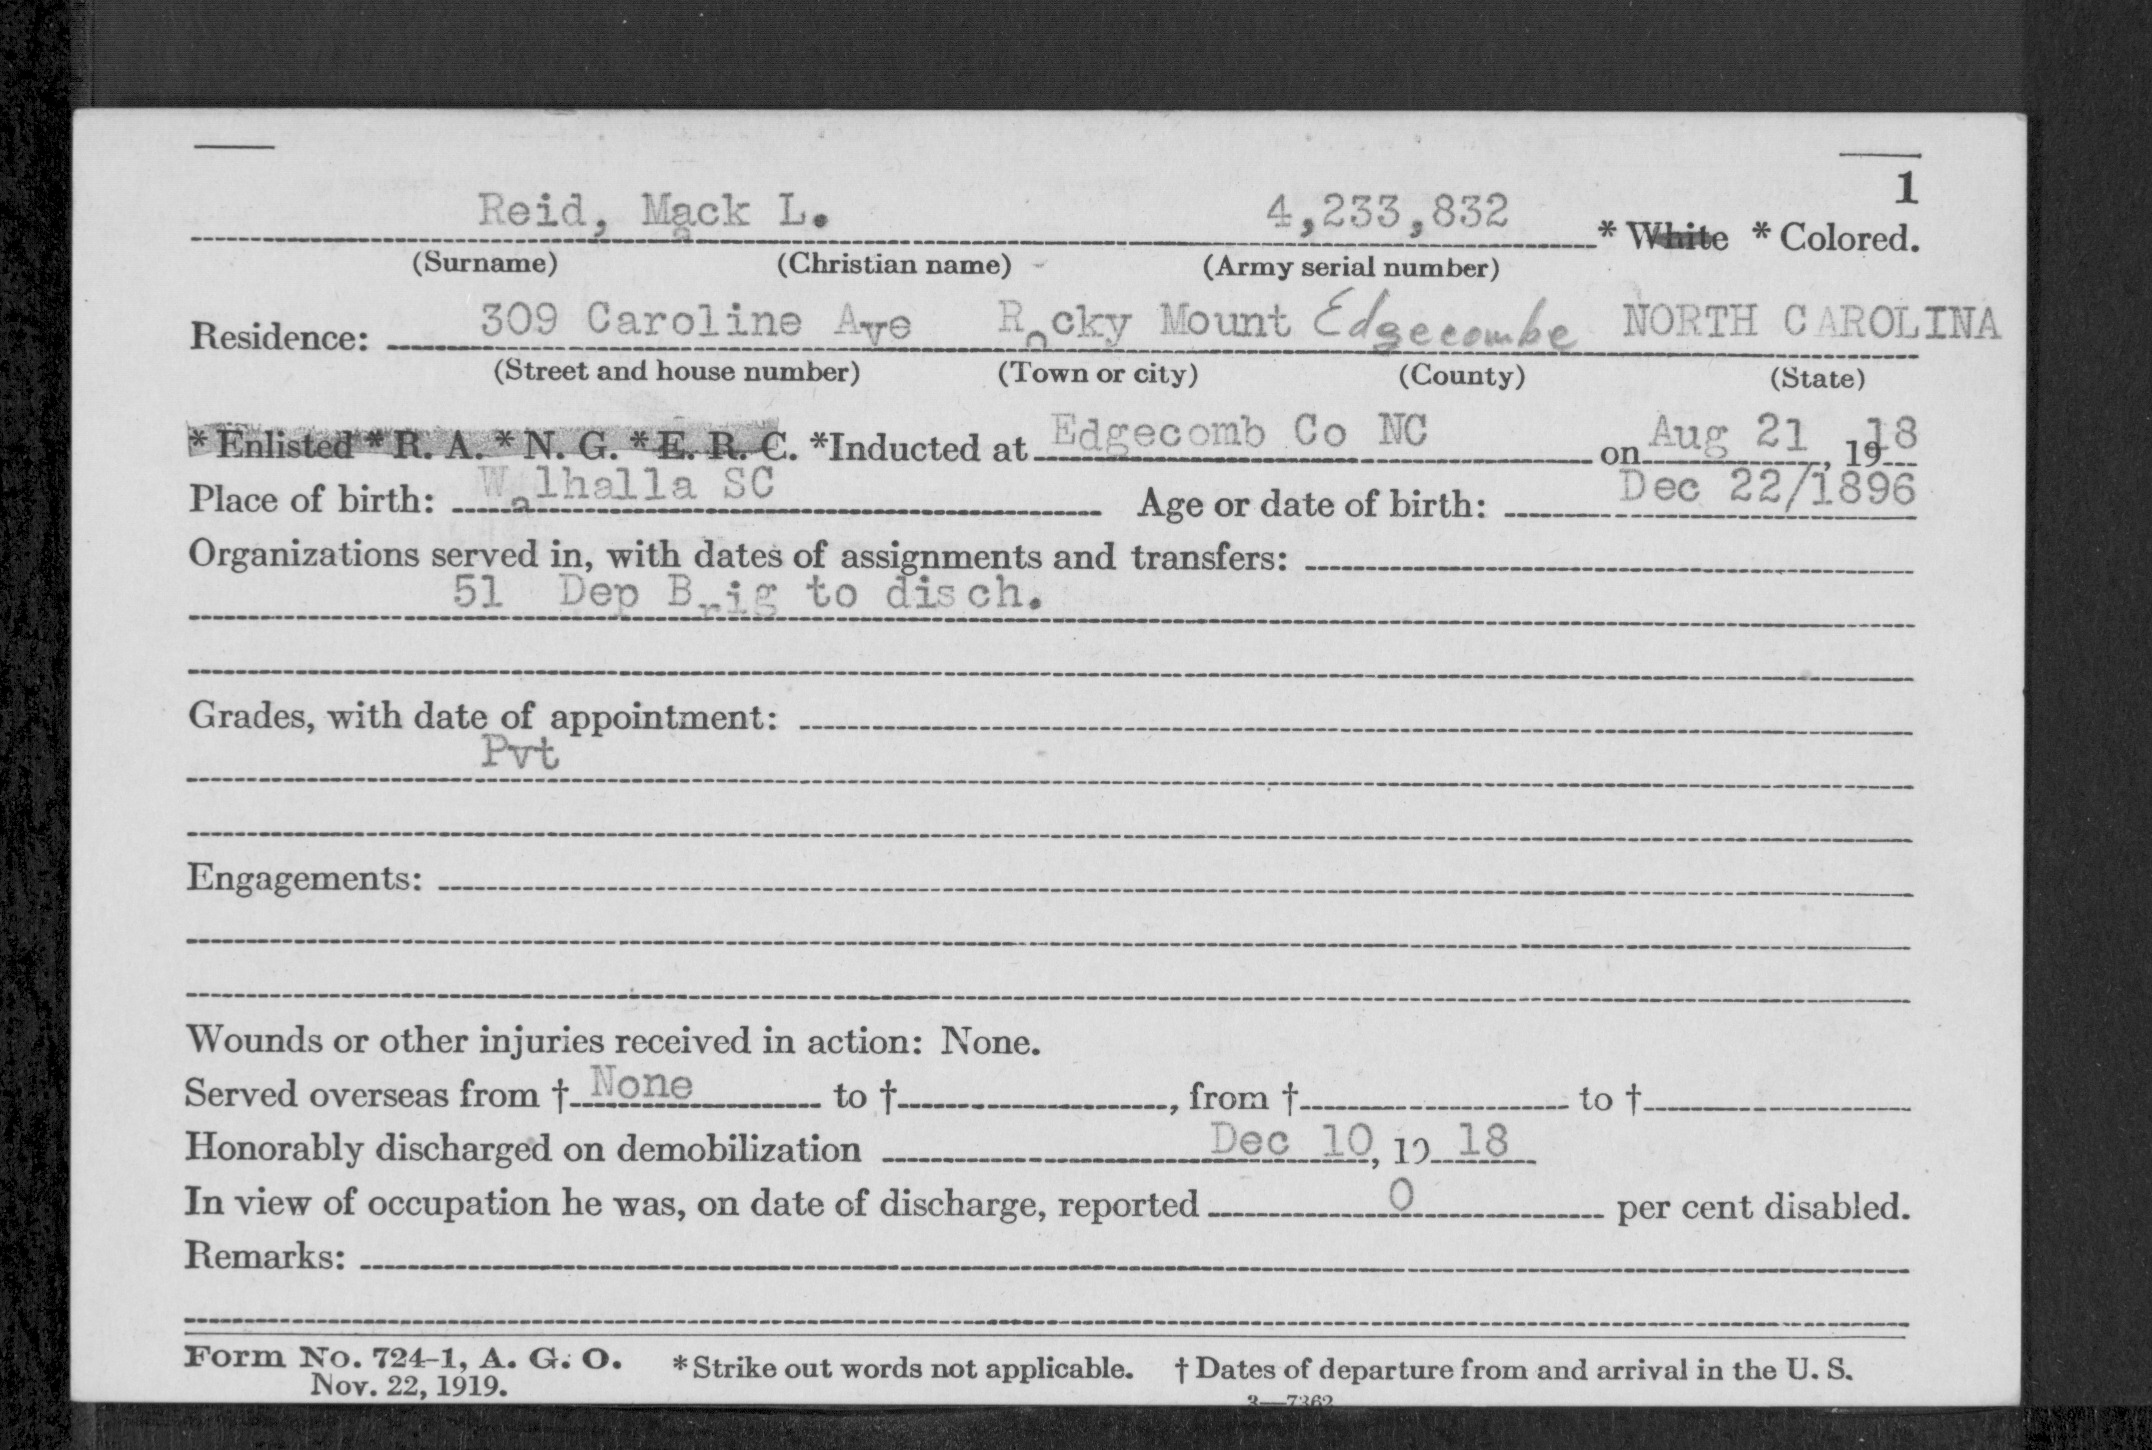 1
Reid, Mack L. 4,233,832 * White * Colored.
(Surname) (Christian name) (Army serial number)
Residence: 309 Caroline Ave Rocky Mount Edgecombe NORTH CAROLINA
(Street and house number) (Town or city) (County) (State)
* Enlisted * R. A. * N. G. * E. R. C. *Inducted at Edgecomb Co NC on Aug 21, 1918
Place of birth: Walhalla SC Age or date of birth: Dec 22/1896
Organizations served in, with dates of assignments and transfers:
51 Dep Brig to disch.
Grades, with date of appointment:
Pvt
Engagements:
Wounds or other injuries received in action: None.
Served overseas from † None to †, from † to †
Honorably discharged on demobilization Dec 10, 19 18
In view of occupation he was, on date of discharge, reported 0 per cent disabled.
Remarks:
Form No. 724-1, A. G. O. * Strike out words not applicable. † Dates of departure from and arrival in the U. S.
Nov. 22, 1919.
3—7362